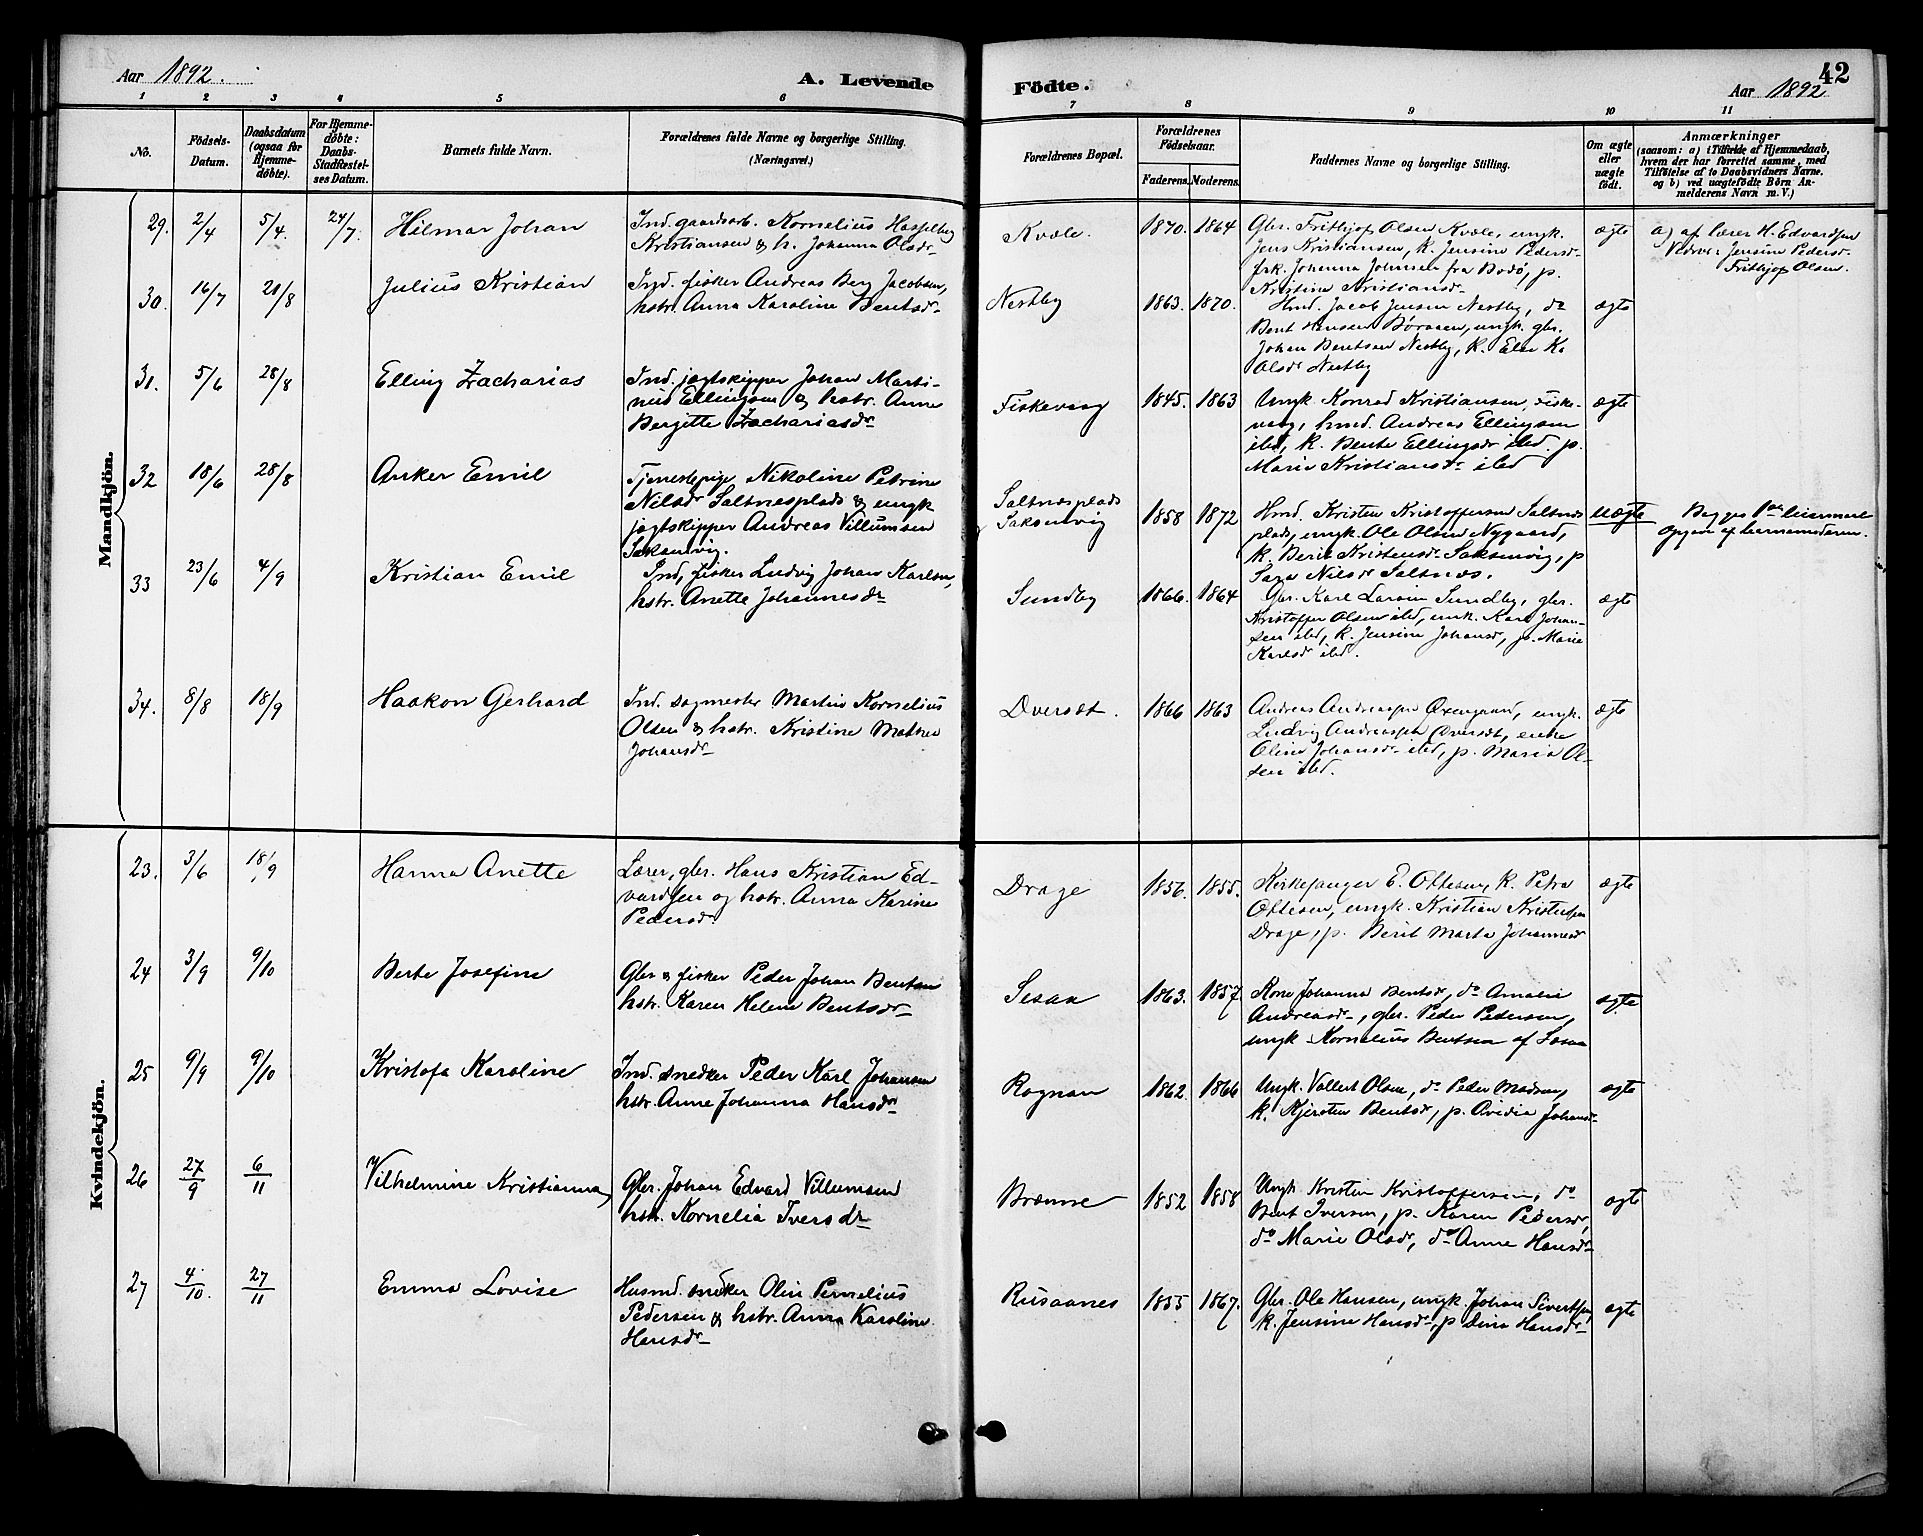 Aar 1892.
A. Levende
Födte.
Aar 1892
42
1 2 3 4 5 6 7 8 9 10 11
No.
Födsels-
Datum.
Daabsdatum
(ogsaa for
Hjemme-
døbte).
For Hjemme-
døbte:
Daabs-
Stadfæstel-
ses Datum.
Barnets fulde Navn.
Forældrenes fulde Navne og borgerlige Stilling.
(Næringsvei.)
Forældrenes Bopæl.
Forældrenes
Födselsaar.
Faderens. Moderens.
Faddernes Navne og borgerlige Stilling.
Om ægte
eller
uægte
födt.
Anmærkninger
(saasom: a) i Tilfælde af Hjemmedaab,
hvem der har forrettet samme, med
Tilföielse af to Daabsvidners Navne.
og b) ved uægtefödte Börn An-
melderens Navn m. V.)
Mandkjön.
29. 2/4 5/4. 24/7. Hilmar Johan
Ind. gaardsarb. Kornelius Hasselberg
Kristiansen & h. Johanna Olsdr
Kvæle. 1870. 1864
Gbr. Frithjof Olsen Kvæle, ungk.
Jens Kristiansen, k. Jensine Pedersd
frk. Johanna Johnsen fra Bodø, p.
Kristine Kristiansdr
ægte
a) af lærer H. Edvardsen
Vidner: Jensine Pedersd.
Frithjof Olsen.
30. 16/7 21/8 Julius Kristian
Ind. fisker Andreas Berg Jacobsen,
hstr. Anna Karoline Bentsdr
Nestby 1863. 1870.
Hmd. Jacob Jensen Nestby, do
Bent Hansen Børaasen, ungk. gbr.
Johan Bentsen Nestby, k. Elen K.
Olsdr Nestby
ægte
31. 5/6 28/8 Elling Zacharias
Ind. jagtskipper Johan Marti-
nus Ellingsen & hstr. Anne
Bergitte Zachariasdr
Fiskevaag 1845. 1863
Ungk. Konrad Kristiansen, Fiske-
vaag, hmd. Andreas Ellingsen
ibd, k. Bente Ellingsdr ibd. p.
Marie Kristiansdr ibd
ægte
32 18/6 28/8 Anker Emil
Tjenestepige Nikoline Petrine
Nilsdr Saltnesplads & ungk
jagtskipper Andreas Villumsen
Saksenvig.
Saltnæsplads
Saksenvig 1858 1872
Hmd. Kristen Kristoffersen Saltnæs
plads, ungk. Ole Olsen Nygaard,
k. Berit Kristensdr Saksenvig, p
Sara Nilsdr Saltnæs.
uægte
Begges 1ste leiermaal
Opgav af barnemoderen.
33 23/6 4/9 Kristian Emil
Ind, fisker Ludvig Johan Karlsen,
hstr. Anette Johannesdr
Sundby 1866. 1864
Gbr. Karl Larsen Sundby, gbr.
Kristoffer Olsen ibd, ungk. Karl Johan-
sen ibd, k. Jensine Johansdr, p. Marie
Karlsdr ibd.
ægte
34. 8/8 18/9 Haakon Gerhard
Ind. sagmester Martin Kornelius
Olsen & hstr. Kristine Mathea
Johansdr
Dverset. 1866 1863
Andreas Andreassen Øxengaard, ungk.
Ludvig Andreassen Dverset, enke
Oline Johansdr ibd, p. Maria Ol-
sen ibd.
ægte
Kvindekjön.
23. 3/6 18/9 Hanna Anette
Lærer, gbr. Hans Kristian Ed-
vardsen og hstr. Anna Karine
Pedersdr
Drage 1856. 1855.
Kirkesanger E. Ottesen, k. Petra
Ottesen, ungk. Kristian Kristensen
Drage, p. Berit Marta Johannesdr
ægte
24 3/9 9/10 Berte Josefine
Gbr & fisker Peder Johan Bentsen
hstr. Karen Helene Bentsdr
Lesaa 1863. 1857.
Kone Johanna Bentsdr, do Amalie
Andreasdr, gbr. Peder Pedersen,
ungk Kornelius Bentsen af Lesaa
ægte
25 9/9 9/10 Kristofa Karoline
Ind. snedker Peder Karl Johansen
hstr. Anne Johanna Hansdr
Rognan 1862. 1866
Ungk. Vollert Olsen, do Peder Madsen,
k. Kjersten Bentsdr, p. Ovidia Johansdr
ægte
26 27/9 6/11 Vilhelmine Kristianna,
Gbr. Johan Edvard Villumsen
hstr. Kornelia Iversdr
Brænne 1852 1858
Ungk Kristen Kristoffersen, do
Bent Iversen, p. Karen Pedersdr,
do Marie Olsdr, do Anne Hansdr
ægte
27 4/10. 27/11 Emma Lovise
Husmd. snedker Olin Pernelius
Pedersen & hstr. Anna Karoline
Hansdr
Rusaanes 1855 1867.
Gbr. Ole Hansen, ungk. Johan Sivertsen,
k. Jensine Hansdr, p Sina Hansdr
ægte